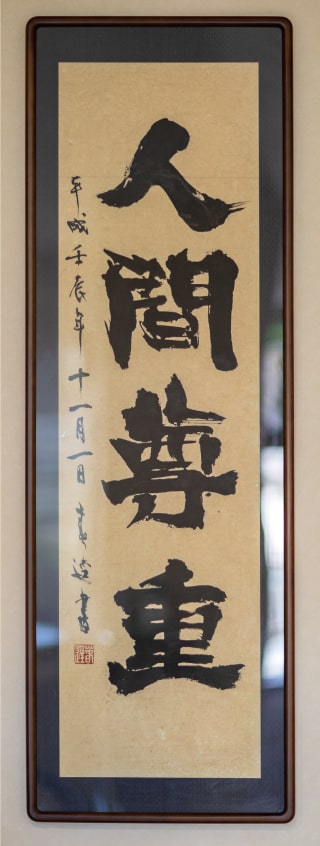 人間尊重
平成壬辰年十一月一日